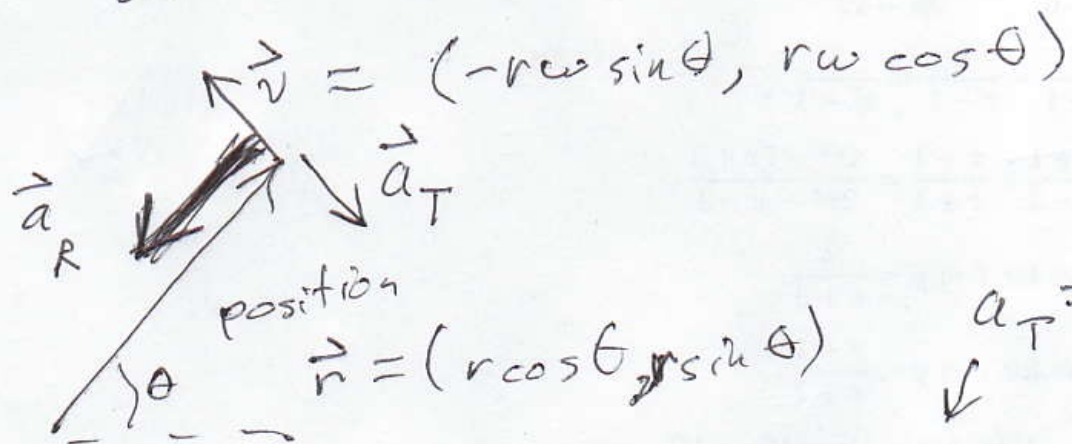 v⃗ = (-rω sin θ, rω cos θ)
a⃗_T
a⃗_R
position
r⃗ = (r cos θ, r sin θ)
a_T
θ